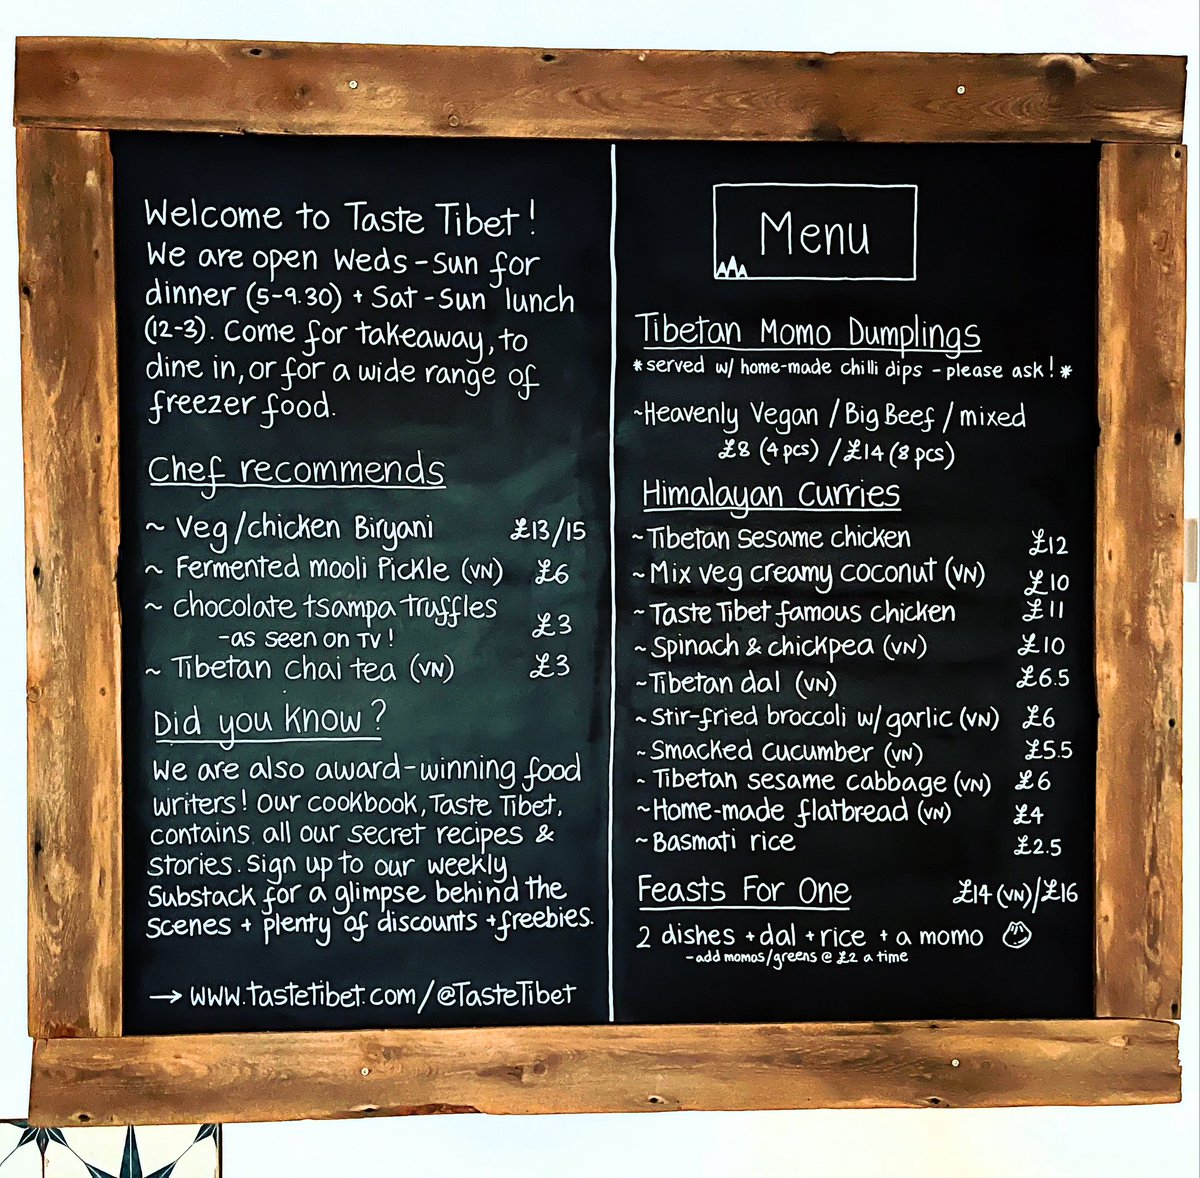 Welcome to Taste Tibet!
We are open Weds - Sun for
dinner (5-9.30) + Sat - Sun lunch
(12-3). Come for takeaway, to
dine in, or for a wide range of
freezer food.
Chef recommends
~ Veg/chicken Biryani £13/15
~ Fermented mooli Pickle (VN) £6
~ chocolate tsampa truffles
- as seen on TV! £3
~ Tibetan chai tea (VN) £3
Did you know?
We are also award-winning food
writers! Our cookbook, Taste Tibet,
contains all our secret recipes &
stories. Sign up to our weekly
Substack for a glimpse behind the
scenes + plenty of discounts + freebies.
→ www.tastetibet.com/@TasteTibet
Menu
Tibetan Momo Dumplings
*served w/ home-made chilli dips - please ask!*
~Heavenly Vegan / Big Beef / mixed
£8 (4 pcs) / £14 (8 pcs)
Himalayan Curries
~Tibetan sesame chicken £12
~Mix veg creamy coconut (VN) £10
~Taste Tibet famous chicken £11
~Spinach & chickpea (VN) £10
~Tibetan dal (VN) £6.5
~Stir-fried broccoli w/ garlic (VN) £6
~Smacked cucumber (VN) £5.5
~Tibetan sesame cabbage (VN) £6
~Home-made flatbread (VN) £4
~Basmati rice £2.5
Feasts For One £14 (VN)/£16
2 dishes + dal + rice + a momo
- add momos/greens @ £2 a time